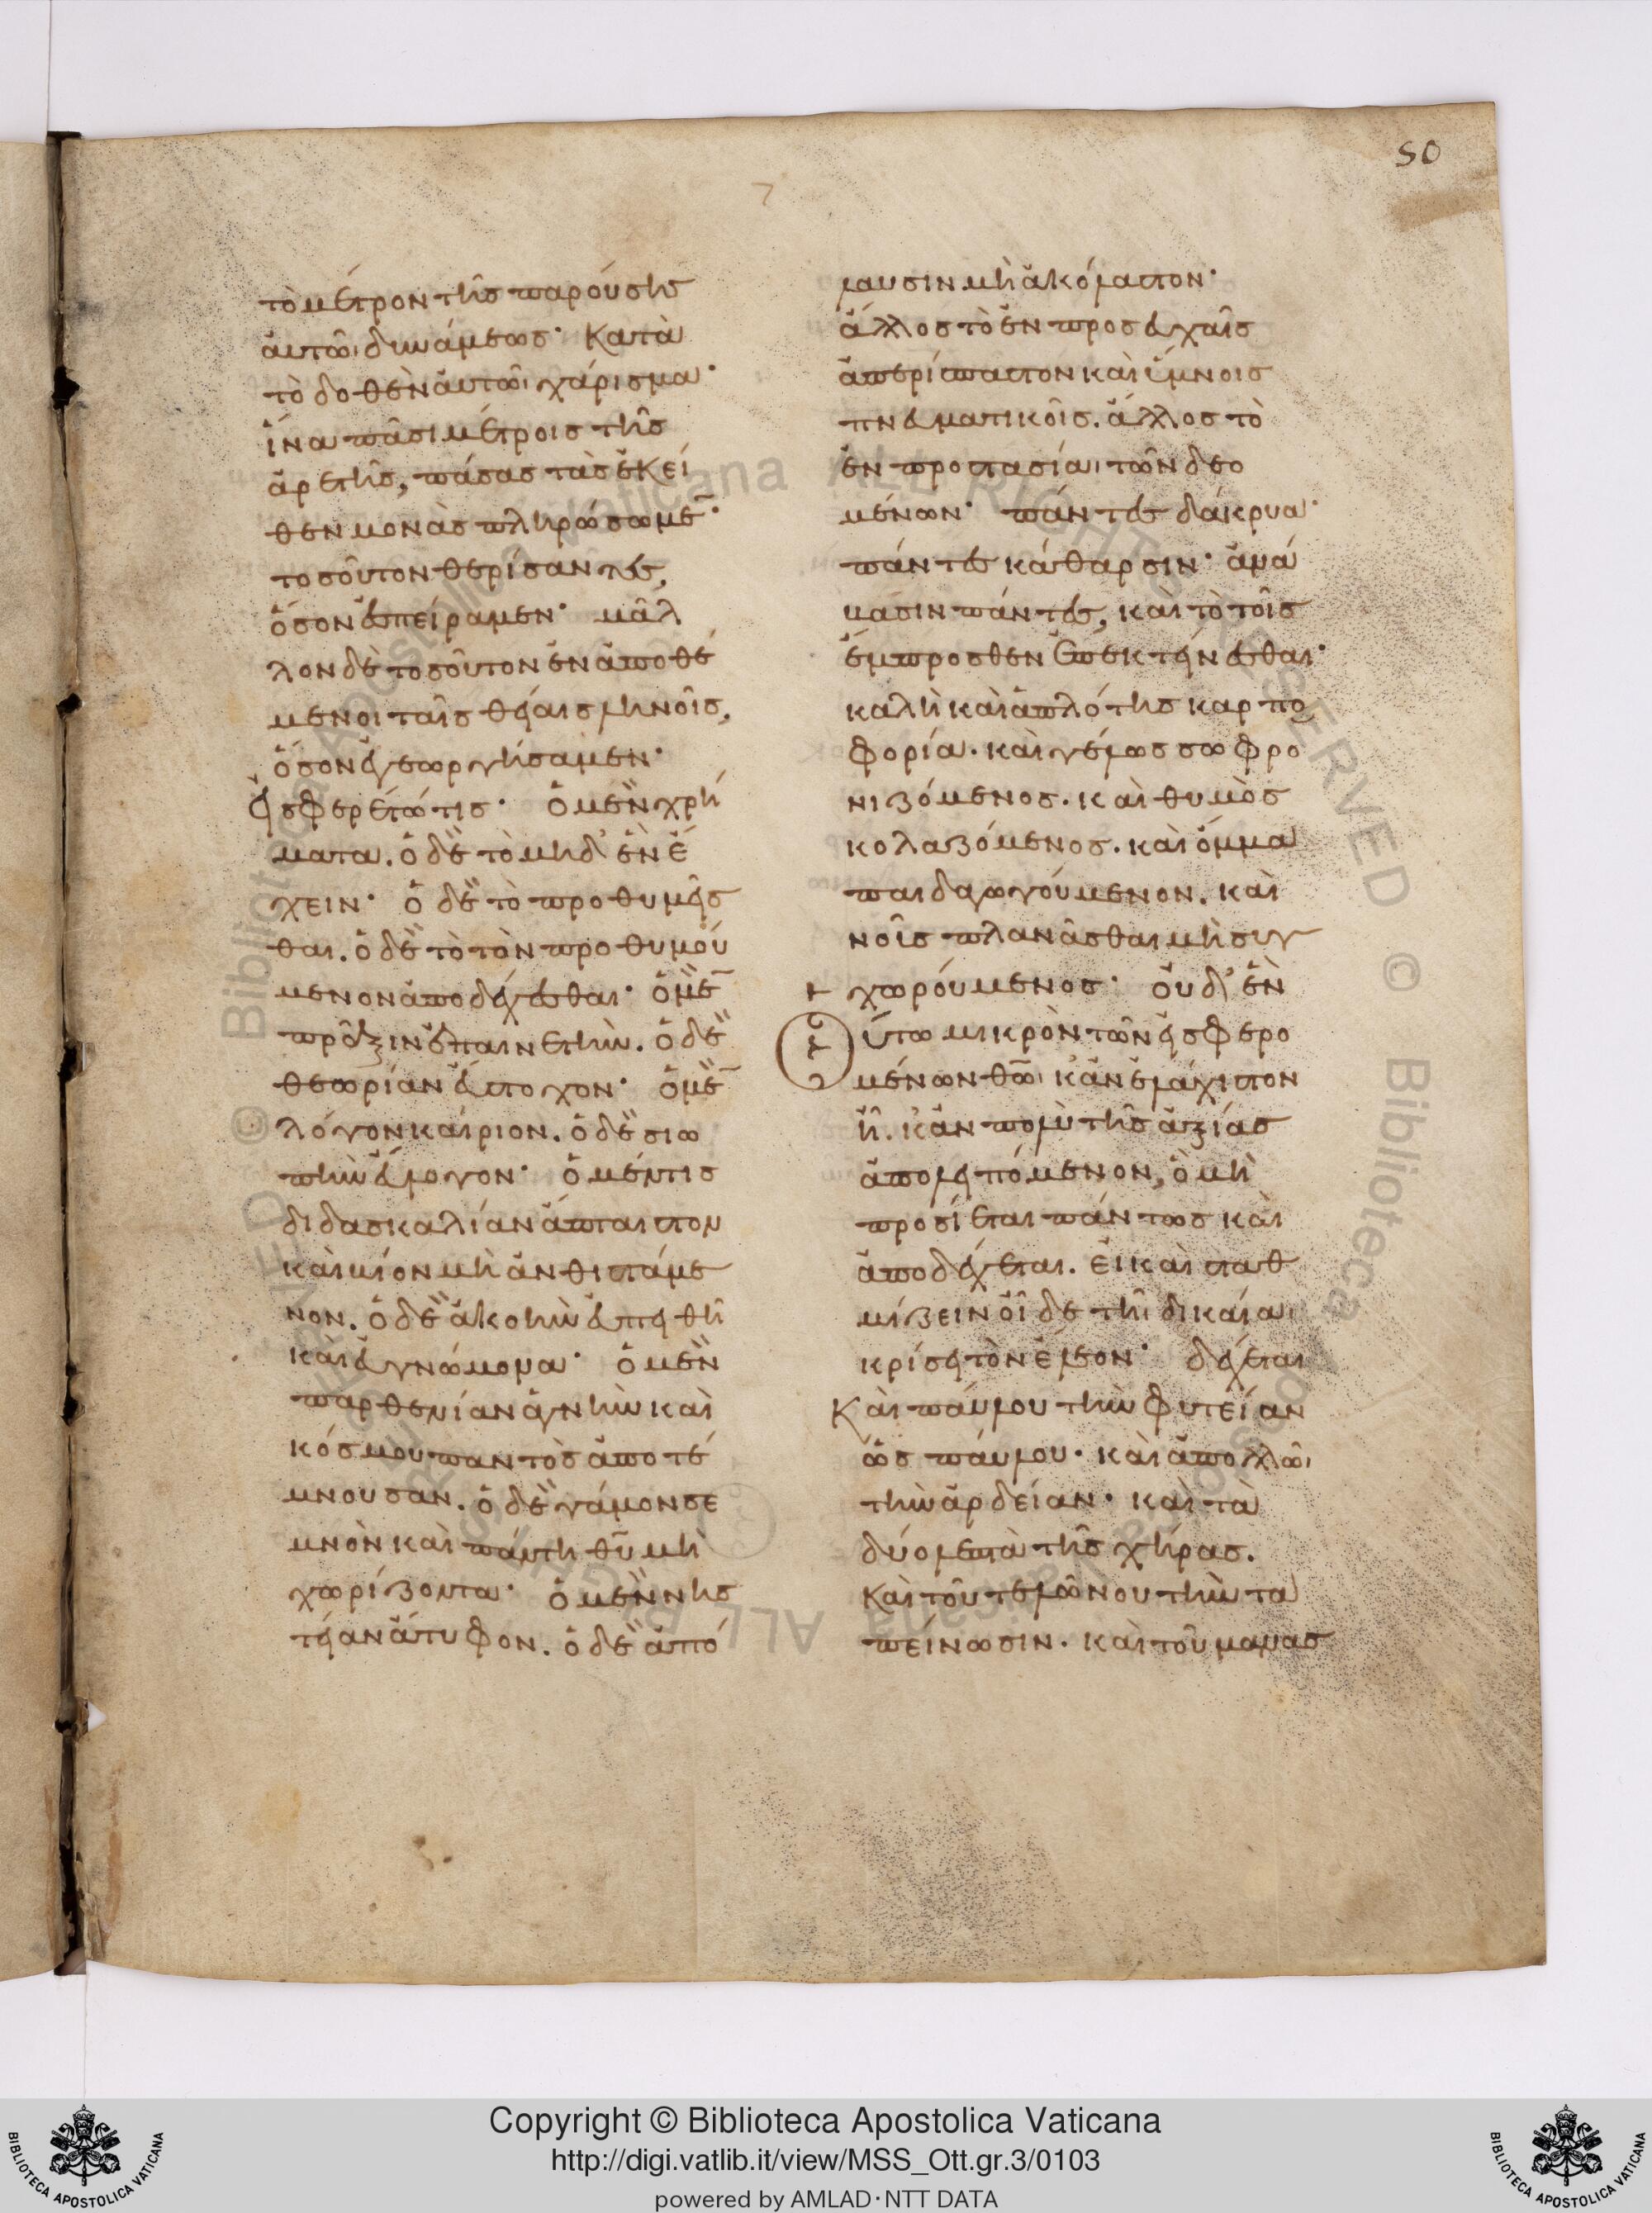 50
τὸ μέτρον τῆς παρούσης
ἀυτῶι δυνάμεως· Κατὰ
τὸ δοθὲν ἀυτῶι χάρισμα·
ἵνα πᾶσι μέτροις τῆς
ἀρετῆς, πάσας τὰς ἐκεί
θεν μονὰς πληρώσωμε̅·
τοσοῦτον θερίσαντες,
ὅσον ἐσπείραμεν· μᾶλ
λον δὲ τοσοῦτον ἐναποθέ
μενοι ταῖς θείαις ληνοῖς,
ὅσον ἐγεωργήσαμεν·
Εἰσφερέτω τις· ὁ μὲν χρή
ματα. ὁ δὲ τὸ μηδ' ἓν ἔ
χειν· ὁ δὲ τὸ προθυμεῖσ
θαι. ὁ δὲ τὸ τὸν προθυμού
μενον ἀποδέχεσθαι· ὁ μὲ̅
πρᾶξιν ἐπαινετήν. ὁ δὲ
θεωρίαν ἔυστοχον· ὁ μὲ̅
λόγον καίριον. ὁ δὲ σιω
πὴν ἔυλογον· ὁ μέν τις
διδασκαλίαν ἄπταιστον
καὶ βίον μὴ ἀνθιστάμε
νον. ὁ δὲ ἀκοὴν ἐυπειθῆ
καὶ ἐυγνώμονα· ὁ μὲν
παρθενίαν ἁγνὴν καὶ
κόσμου παντὸς ἀποτέ
μνουσαν. ὁ δὲ γάμον σε
μνὸν καὶ πάντη θ̅υ̅ μὴ
χωρίζοντα· ὁ μὲν νησ
τείαν ἄτυφον. ὁ δὲ ἀπό
λαυσιν μὴ ἀκόλαστον·
ἄλλος τὸ ἐν προσευχαῖς
ἀπερίσπαστον καὶ ὕμνοις
πνευματικοῖς. ἄλλος τὸ
ἐν προστασίαι τῶν δεο
μένων· πάντες δάκρυα·
πάντες κάθαρσιν· ἀνά
βασιν πάντες, καὶ τὸ τοῖς
ἔμπροσθεν ἐπεκτείνεσθαι·
καλὴ καὶ ἁπλότης καρπο
φορία. καὶ γέλως σωφρο
νιζόμενος. καὶ θυμὸς
κολαζόμενος. καὶ ὄμμα
παιδαγωγούμενον. καὶ
νοῦς πλανᾶσθαι μὴ συγ
χωρούμενος· ὀυδ' ἓν
ὅυτω μικρὸν τῶν εἰσφερο
μένων θ̅ω̅ι κἂν ἐλάχιστον
ἦ. κἂν πολὺ τῆς ἀξίας
ἀπολειπόμενον, ὃ μὴ
προσίεται πάντως καὶ
ἀποδέχεται. εἰ καὶ σταθ
μίζειν οἶδε τῆι δικαίαι
κρίσει τὸν ἔλεον· δέχεται
Καὶ παύλου τὴν φυτείαν
ὡς παύλου· καὶ ἀπολλῶι
τὴν ἀρδείαν· καὶ τὰ
δύο λεπτὰ τῆς χήρας.
Καὶ τοῦ τελώνου τὴν τα
πείνωσιν. καὶ τοῦ μανασ
Copyright © Biblioteca Apostolica Vaticana
http://digi.vatlib.it/view/MSS_Ott.gr.3/0103
powered by AMLAD·NTT DATA